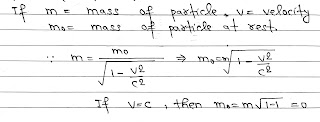 If m = mass of particle, v = velocity
m₀ = mass of particle at rest.
∵ m = m₀ / √(1 - v²/c²) ⇒ m₀ = m √(1 - v²/c²)
If v = c, then m₀ = m√1-1 = 0